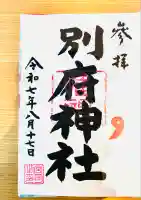 參拜
別府神社
令和七年八月十七日